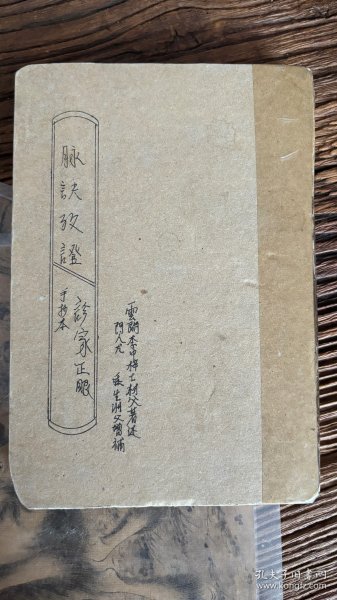 脉訣攷證
診家正眼
手抄本
雲間李中梓士材父著述
門人尤 乗生洲父增補
孔夫子旧书网
www.kongfz.com